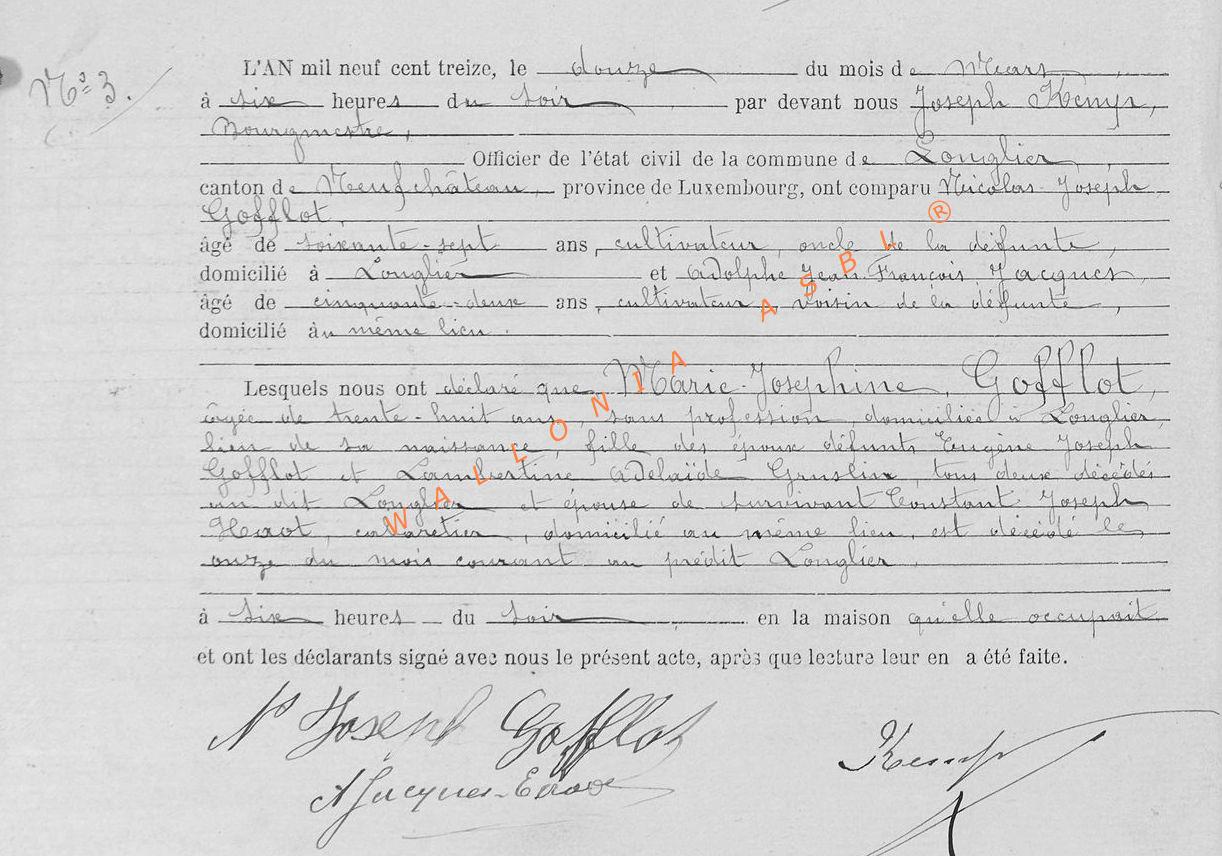 Nº 3.
L'AN mil neuf cent treize, le douze du mois de Mars,
à six heures du soir par devant nous Joseph Kemp,
Bourgmestre,
Officier de l'état civil de la commune de Longlier,
canton de Neufchâteau, province de Luxembourg, ont comparu Nicolas Joseph
Gofflot,
âgé de soixante-sept ans, cultivateur, oncle de la défunte,
domicilié à Longlier et Adolphe Jean François Jacques,
âgé de cinquante-deux ans, cultivateur, voisin de la défunte,
domicilié au même lieu.
Lesquels nous ont déclaré que Marie-Josephine Gofflot,
âgée de trente-huit ans, sans profession, domiciliée à Longlier,
lieu de sa naissance, fille des époux défunts Eugène Joseph
Gofflot et Lambertine Adelaïde Gruslin, tous deux décédés
au dit Longlier et épouse de survivant Constant Joseph
Haot, cabaretier, domicilié au même lieu, est décédé le
onze du mois courant au prédit Longlier.
à six heures du soir en la maison qu'elle occupait
et ont les déclarants signé avec nous le présent acte, après que lecture leur en a été faite.
Ns Joseph Gofflot
Kemp
A Jacques-
WALLONIA ASBL ®